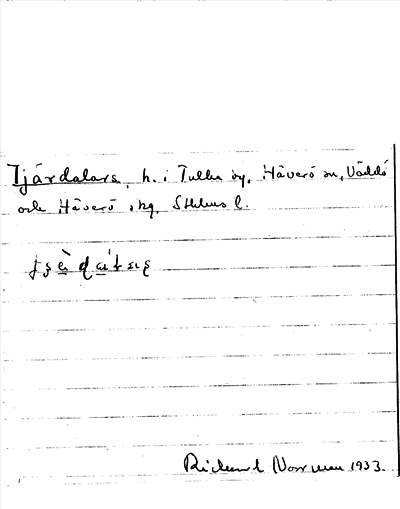 Tjärdalars, h. i Tulka by, Häverö sn, Väddö
och Häverö skg, Sthlms l.
Rickard Norrman 1933.